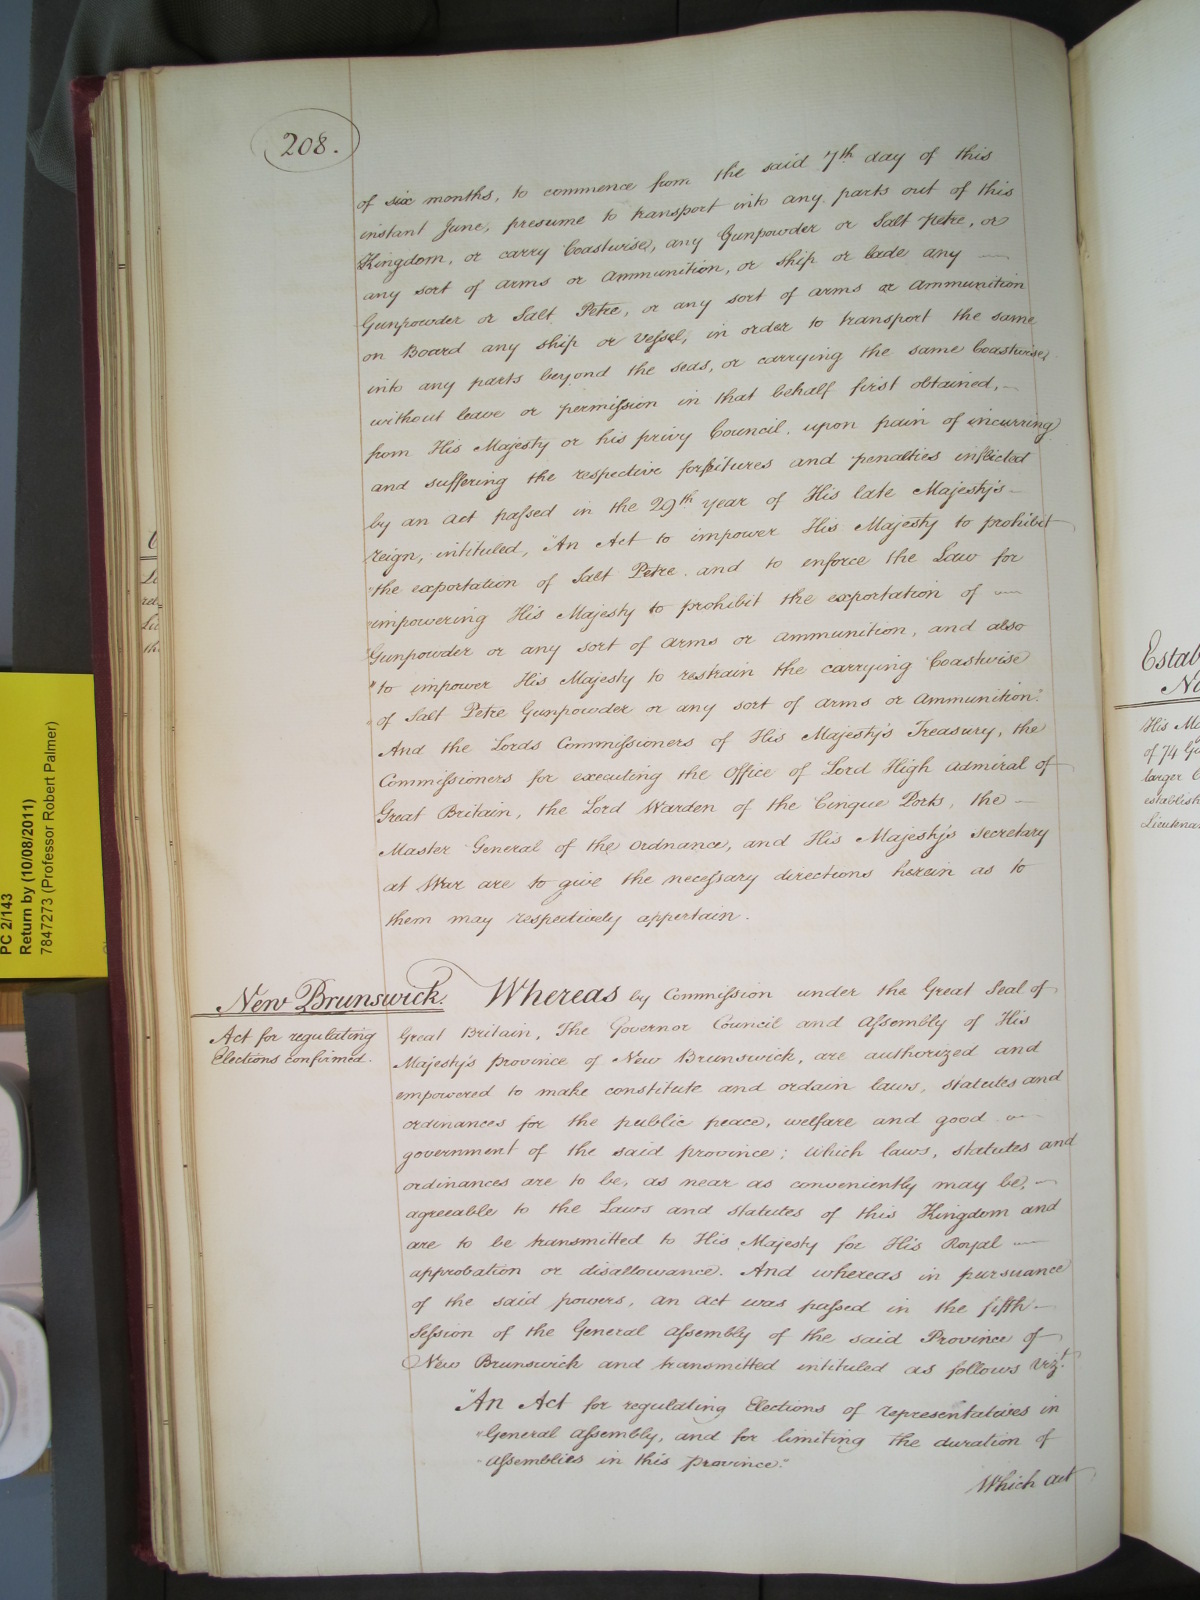 208.
of six months, to commence from the said 7th day of this
instant June, presume to transport into any parts out of this
Kingdom, or carry Coastwise, any Gunpowder or Salt Petre, or
any sort of arms or ammunition, or ship or lade any
Gunpowder or Salt Petre, or any sort of arms or ammunition
on Board any ship or vessel, in order to transport the same
into any parts beyond the seas, or carrying the same Coastwise,
without leave or permission in that behalf first obtained,
from His Majesty or his privy Council, upon pain of incurring
and suffering the respective forfeitures and penalties inflicted
by an act passed in the 29th year of His late Majesty's
reign, intituled, "An Act to impower His Majesty to prohibit
"the exportation of Salt Petre and to enforce the Law for
"impowering His Majesty to prohibit the exportation of
"Gunpowder or any sort of arms or ammunition, and also
"to impower His Majesty to restrain the carrying Coastwise
"of Salt Petre Gunpowder or any sort of arms or ammunition."
And the Lords Commissioners of His Majesty's Treasury, the
Commissioners for executing the Office of Lord High Admiral of
Great Britain, the Lord Warden of the Cinque Ports, the
Master General of the Ordnance, and His Majesty's Secretary
at War are to give the necessary directions herein as to
them may respectively appertain.
New Brunswick.
Act for regulating
Elections confirmed.
Whereas by Commission under the Great Seal of
Great Britain, The Governor Council and Assembly of His
Majesty's Province of New Brunswick, are authorized and
empowered to make constitute and ordain laws, statutes and
ordinances for the public peace, welfare and good
government of the said province; which laws, statutes and
ordinances are to be, as near as conveniently may be,
agreeable to the Laws and statutes of this Kingdom and
are to be transmitted to His Majesty for His Royal
approbation or disallowance. And whereas in pursuance
of the said powers, an act was passed in the fifth
Session of the General Assembly of the said Province of
New Brunswick and transmitted intituled as follows Vizt.
"An Act for regulating Elections of representatives in
"General Assembly, and for limiting the duration of
"Assemblies in this Province."
Which act
PC 2/143
Return by (10/08/2011)
7847273 (Professor Robert Palmer)
His Ma
of 74 Gu
larger
establish
Lieutena